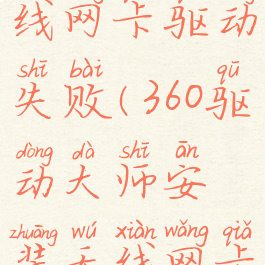 线网卡驱动
shī bài qū
失败(360驱
dòng dà shī ān
动大师安
zhuāng wú xiàn wǎng qiǎ
装无线网卡